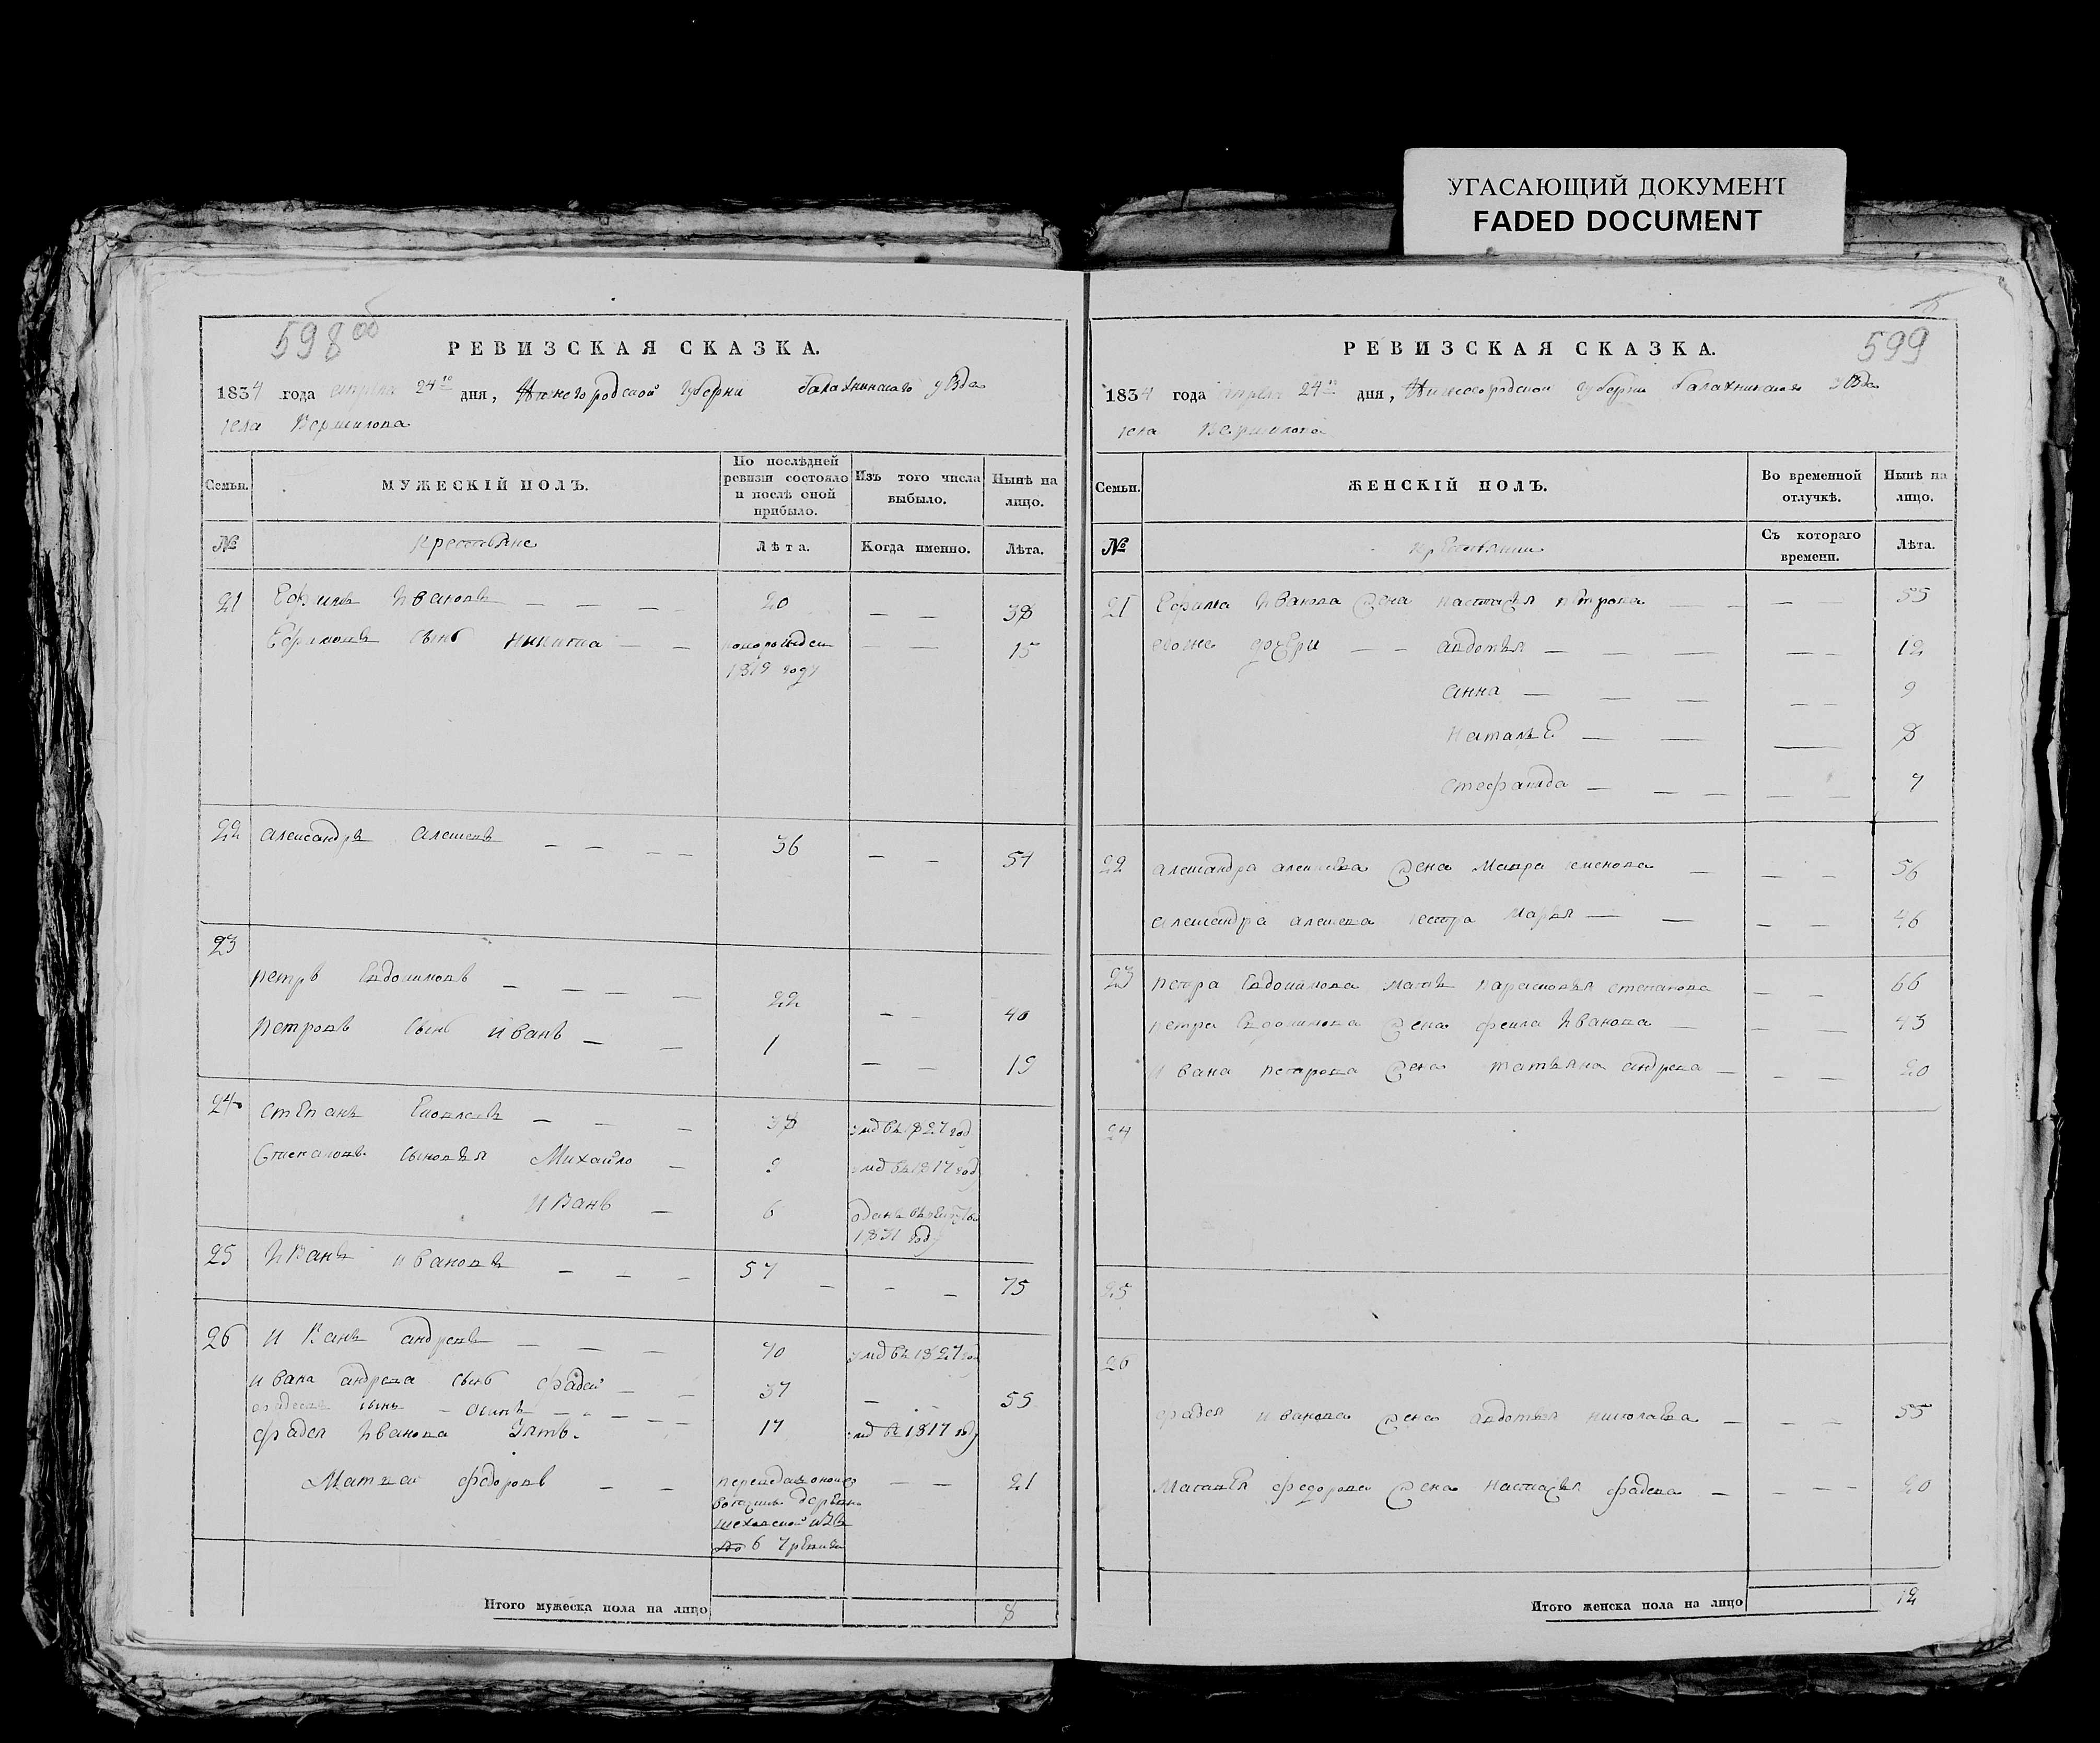 УГАСАЮЩИЙ ДОКУМЕНТ
FADED DOCUMENT
598 об
РЕВИЗСКАЯ СКАЗКА.
1834 года апреля 24го дня, Нижегородской губерни балахнинского уѣзда
села Вершилова
Семьи.
МУЖЕСКІЙ ПОЛЪ.
По послѣдней ревизіи состояло и послѣ оной прибыло.
Изъ того числа выбыло.
Нынѣ на лицо.
№
крестьяне
Лѣта.
Когда именно.
Лѣта.
21 Ефимъ Ивановъ — — — — 20 — — 38
Ефимовъ сынъ никита — — новорожден — — 15
1819 году
22 александръ алексеевъ — — — — 36 — — 54
23
петръ Евдокимовъ — — — — 22 — — 40
петровъ сынъ иванъ — — 1 — — 19
24 степанъ — — — 38 умд въ 1827 год
Степановъ сыновья Михайло — 9 умд въ 1817 год
иванъ — 6 отданъ въ рекруты
1831 год
25 Иванъ ивановъ — — — 57 — — — 75
26 иванъ андреевъ — — — 70 умд въ 1827 го
ивана андреева сынъ фадей — — 37 — — 55
фадеевъ сынъ — осипъ — — — — — 17 умд въ 1817 году
фадея Иванова Зять.
Матвей федоровъ — — — — 21
Итого мужеска пола на лицо 8
599
РЕВИЗСКАЯ СКАЗКА.
1834 года апреля 24го дня, Нижегородской губерни балахнинского уѣзда
села Вершилова
Семьи.
ЖЕНСКІЙ ПОЛЪ.
Во временной отлучкѣ.
Нынѣ на лицо.
№
крестьянки
Съ котораго времени.
Лѣта.
21 Ефима Иванова жена настасья петрова — — — — 35
евоже дочери — — авдотья — — — — — 12
анна — — — — — 9
наталье — — — — 8
стефанида — — — — — — 7
22 александра алексеева жена Мавра семенова — — — 56
александра алексеева сестра марья — — — — 46
23 петра Евдокимова мать парасковья степанова — — 66
петра Евдокимова жена фекла Иванова — — — 43
ивана петрова жена татьяна андреева — — — 20
24
25
26
фадея иванова жена авдотья николаева — — — 55
Матвея федорова жена настасья фадеева — — — — 20
Итого женска пола на лицо 12